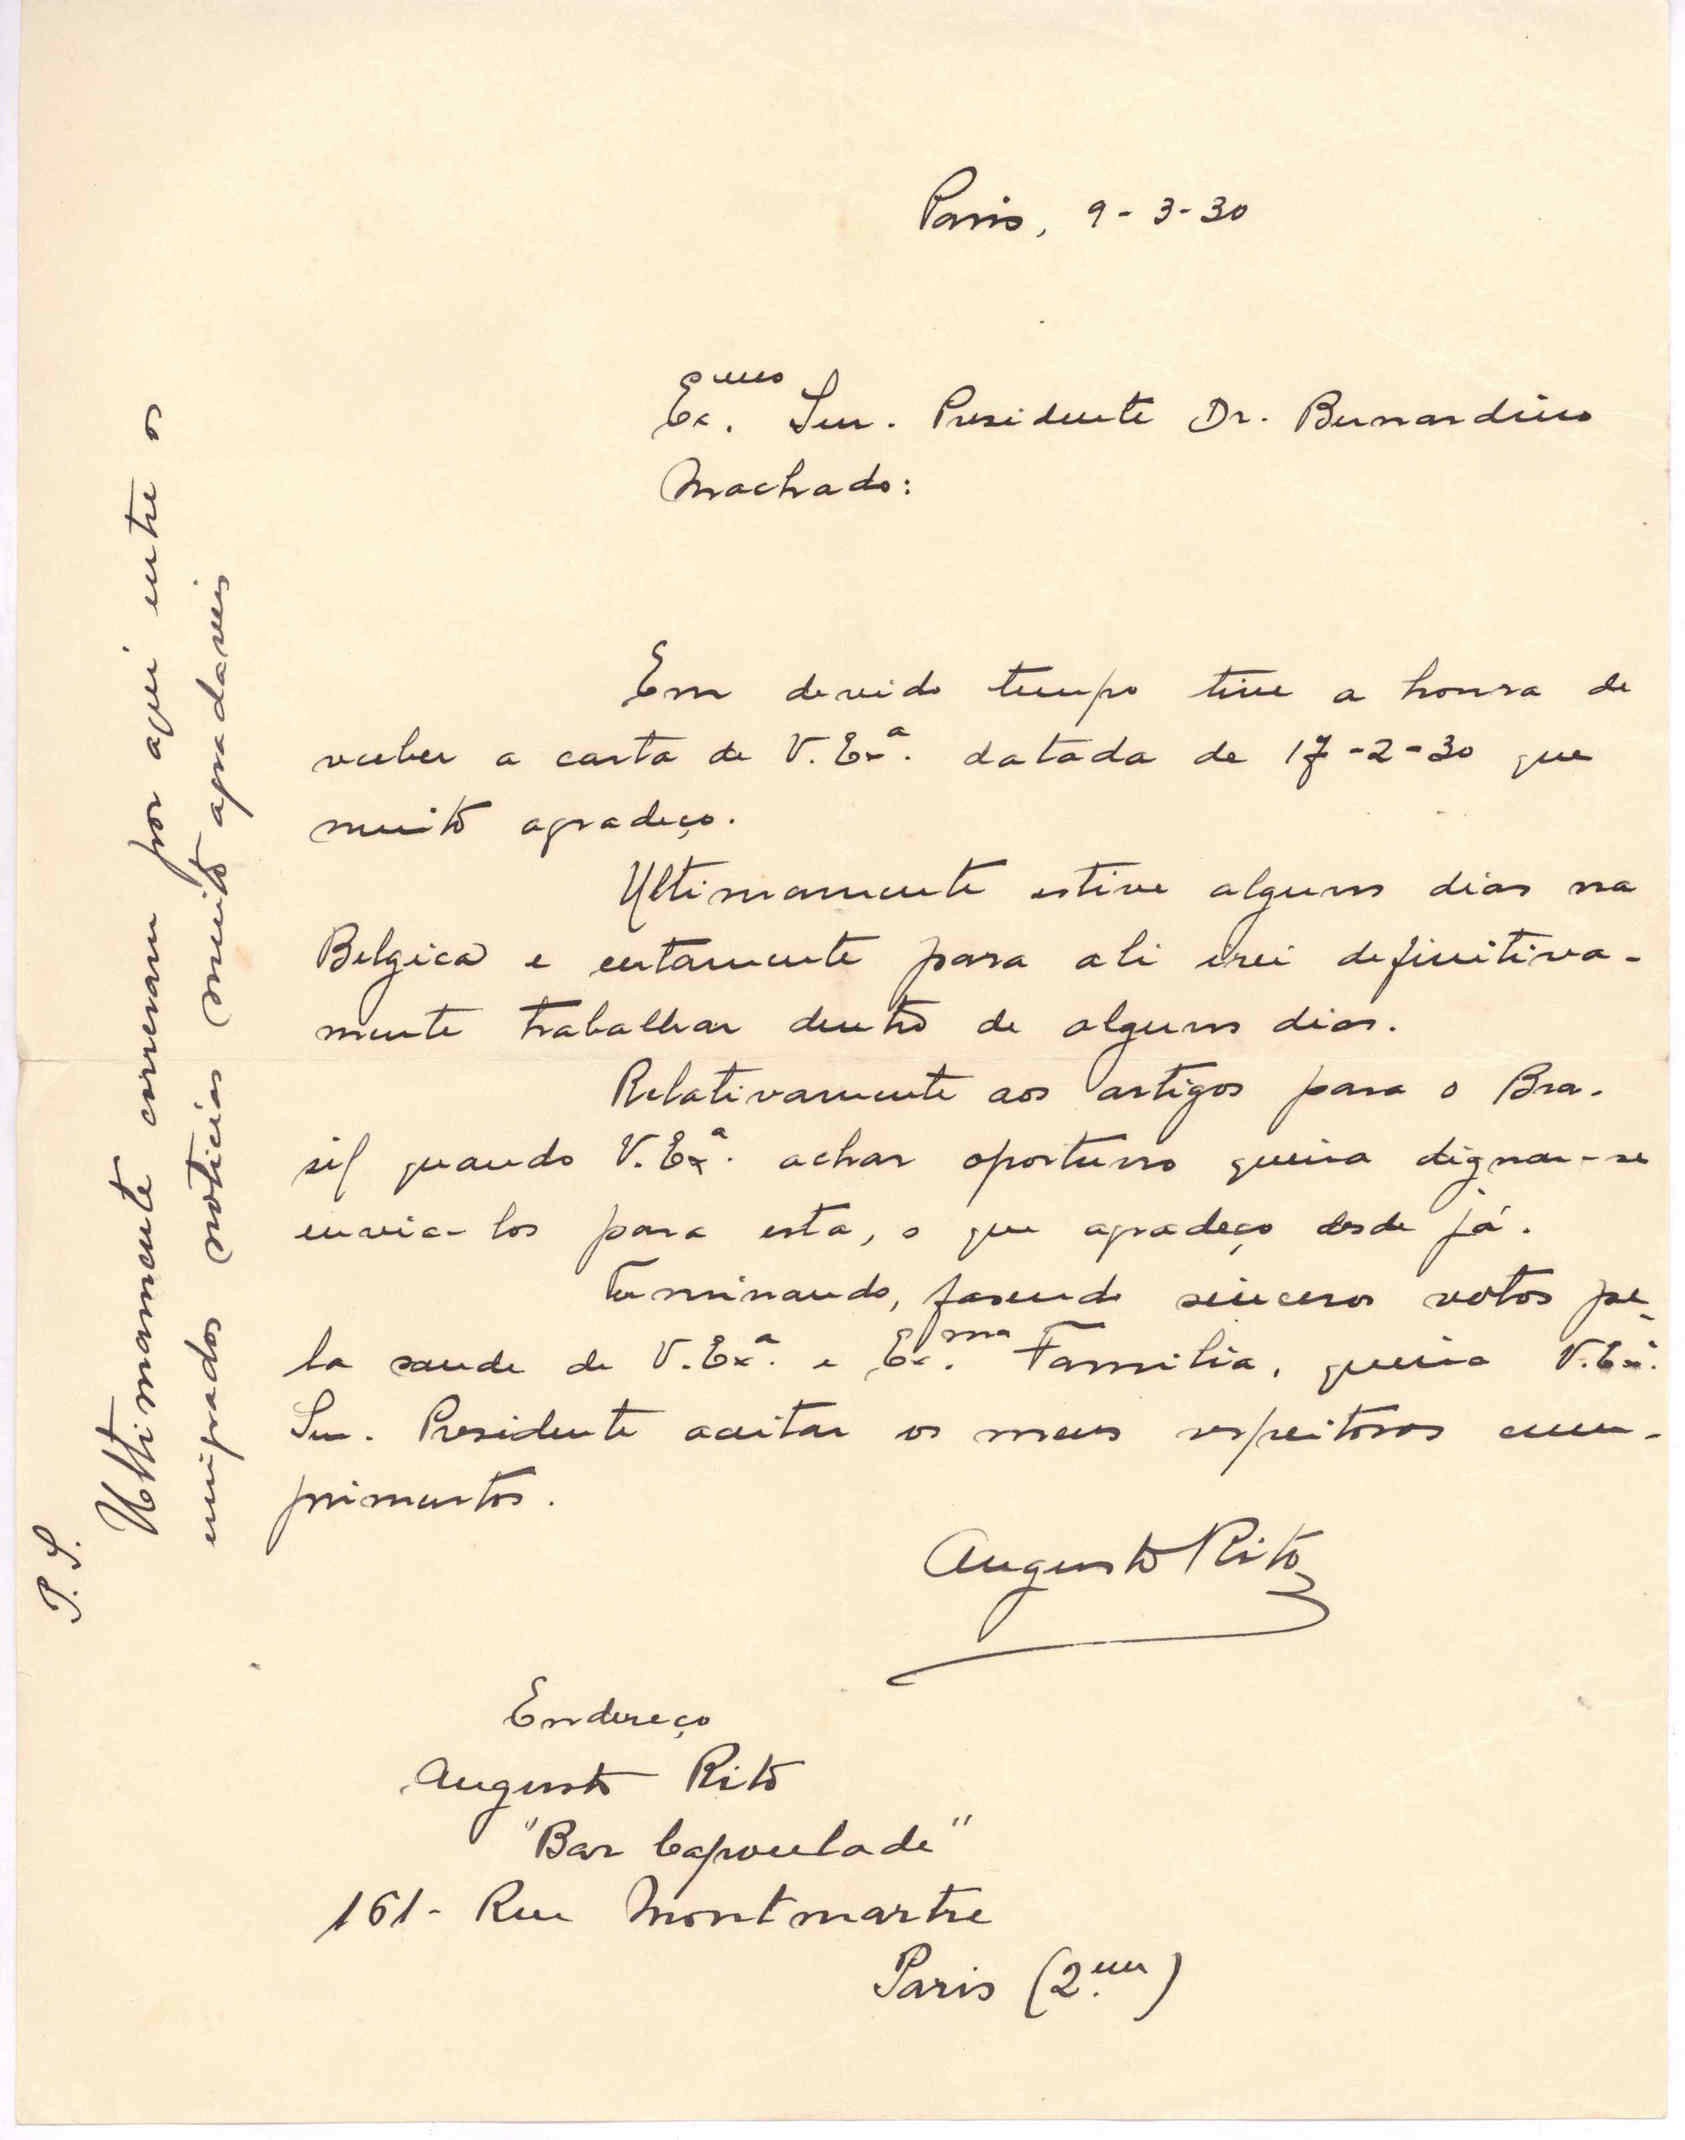 Paris, 9-3-30
Ex.mo Snr. Presidente Dr. Bernardino
Machado:
Em devido tempo tive a honra de
receber a carta de V. Ex.a datada de 17-2-30 que
muito agradeço.
Ultimamente estive alguns dias na
Belgica e certamente para ali irei definitiva-
mente trabalhar dentro de alguns dias.
Relativamente aos artigos para o Bra-
sil quando V. Ex.a achar oportuno queira dignar-se
envia-los para esta, o que agradeço desde já.
Terminando, fasendo sinceros votos pe-
la saude de V. Ex.a e Ex.ma Familia, queira V. Ex.a
Snr. Presidente aceitar os meus respeitosos cum-
primentos.
Augusto Rito
Endereço
Augusto Rito
"Bar Capoulade"
161- Rue Montmartre
Paris (2.em)
P.S.
Ultimamente correram por aqui entre os
emigrados noticias muito agradaveis